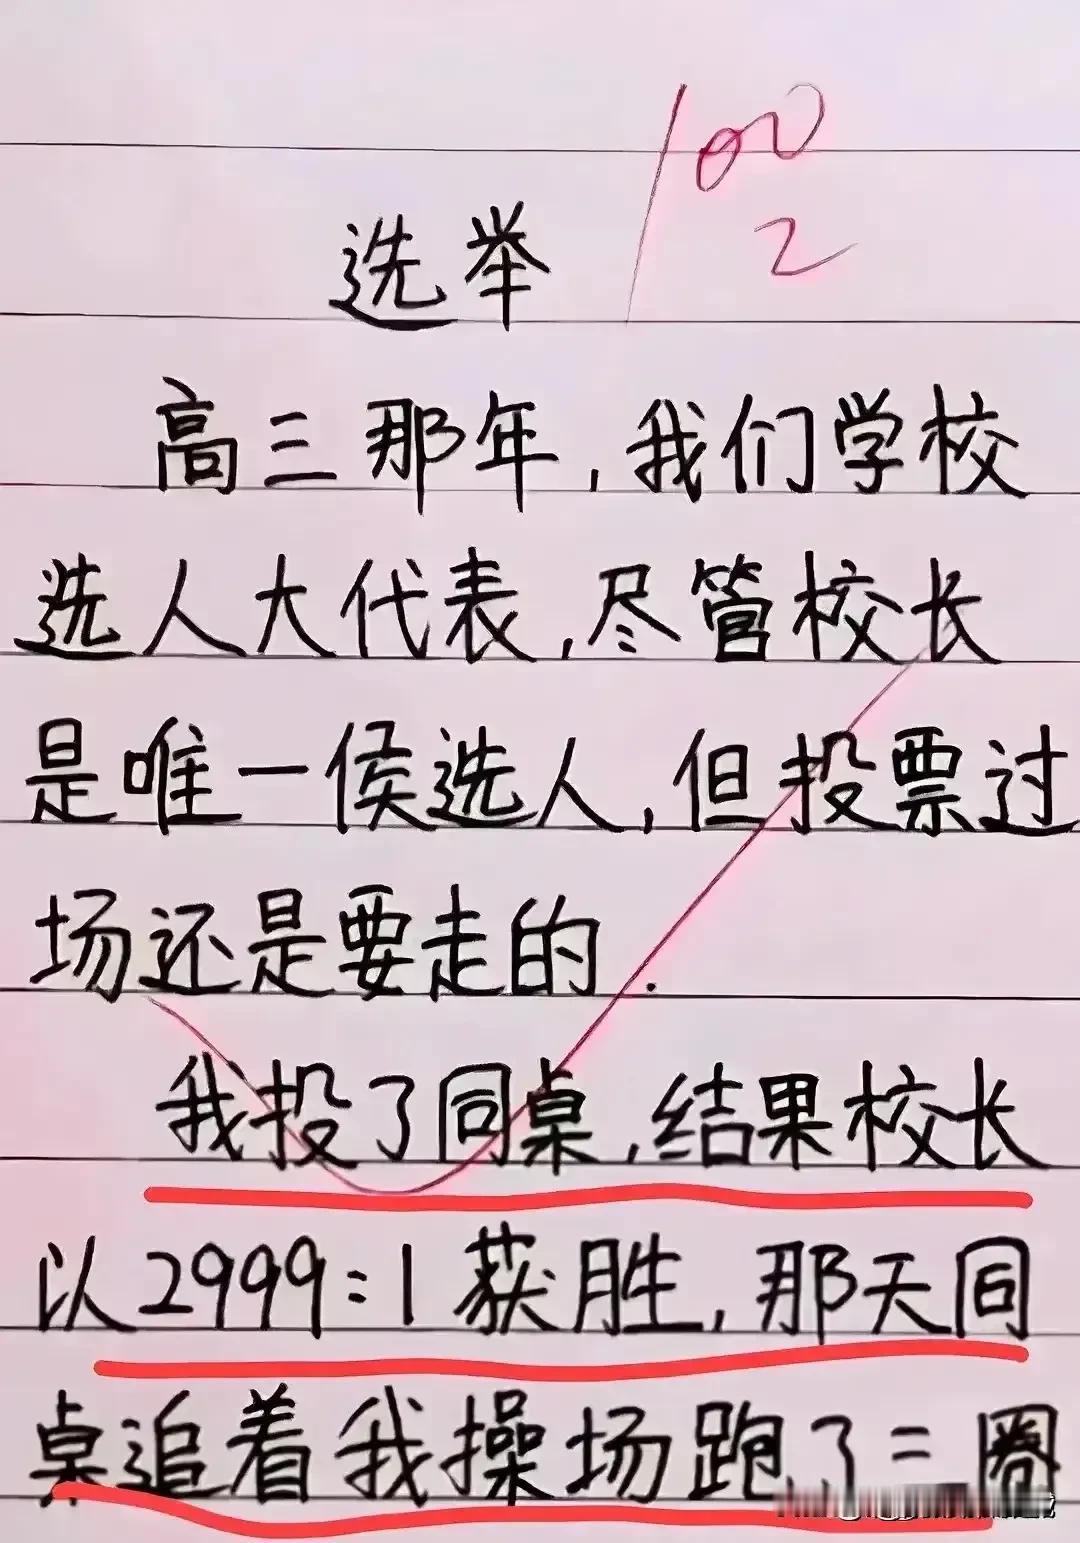 100
2
选举
高三那年,我们学校
选人大代表,尽管校长
是唯一候选人,但投票过
场还是要走的.
我投了同桌,结果校长
以2999:1获胜,那天同
桌追着我操场跑了二圈